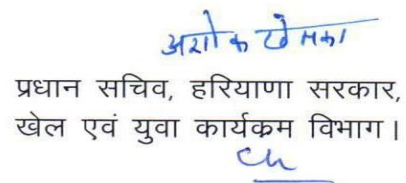 अशोक खेमका
प्रधान सचिव, हरियाणा सरकार,
खेल एवं युवा कार्यक्रम विभाग।